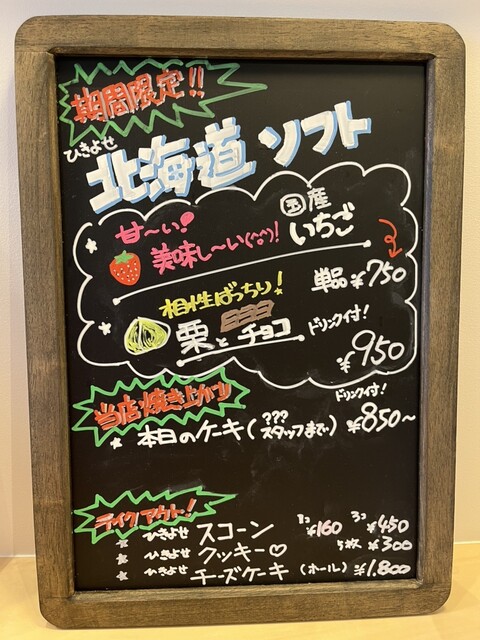 期間限定!!
ひきよせ
北海道 ソフト
甘〜い! 国産
美味し〜い(^^)! いちご
相性ばっちり! 単品 ¥750
栗と チョコ ドリンク付!
¥950
当店焼き上がり ドリンク付!
本日のケーキ(??? スタッフまで) ¥850〜
テイクアウト!
ひきよせ スコーン 1コ ¥160 3コ ¥450
ひきよせ クッキー♡ 5枚 ¥300
ひきよせ チーズケーキ (ホール) ¥1.800